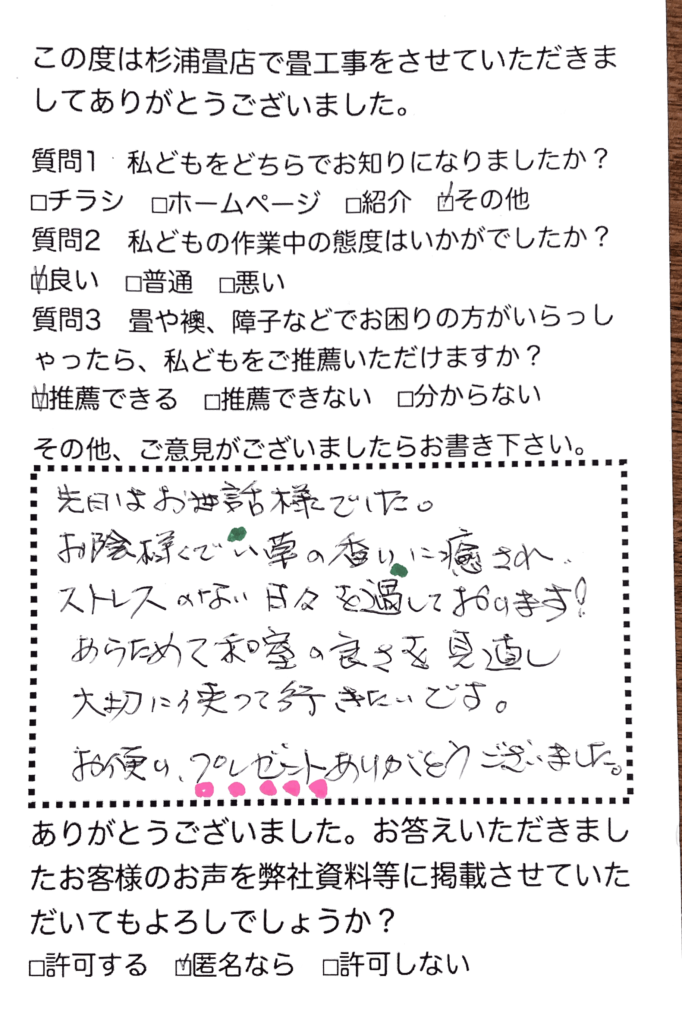 この度は杉浦畳店で畳工事をさせていただきま
してありがとうございました。
質問1 私どもをどちらでお知りになりましたか？
□チラシ □ホームページ □紹介 ☑その他
質問2 私どもの作業中の態度はいかがでしたか？
☑良い □普通 □悪い
質問3 畳や襖、障子などでお困りの方がいらっし
ゃったら、私どもをご推薦いただけますか？
☑推薦できる □推薦できない □分からない
その他、ご意見がございましたらお書き下さい。
先日はお世話様でした。
お陰様でい草の香りに癒され、
ストレスのない日々を過しております!
あらためて和室の良さを見直し
大切に使って行きたいです。
お便り、プレゼントありがとうございました。
ありがとうございました。お答えいただきまし
たお客様のお声を弊社資料等に掲載させていた
だいてもよろしでしょうか？
□許可する ☑匿名なら □許可しない